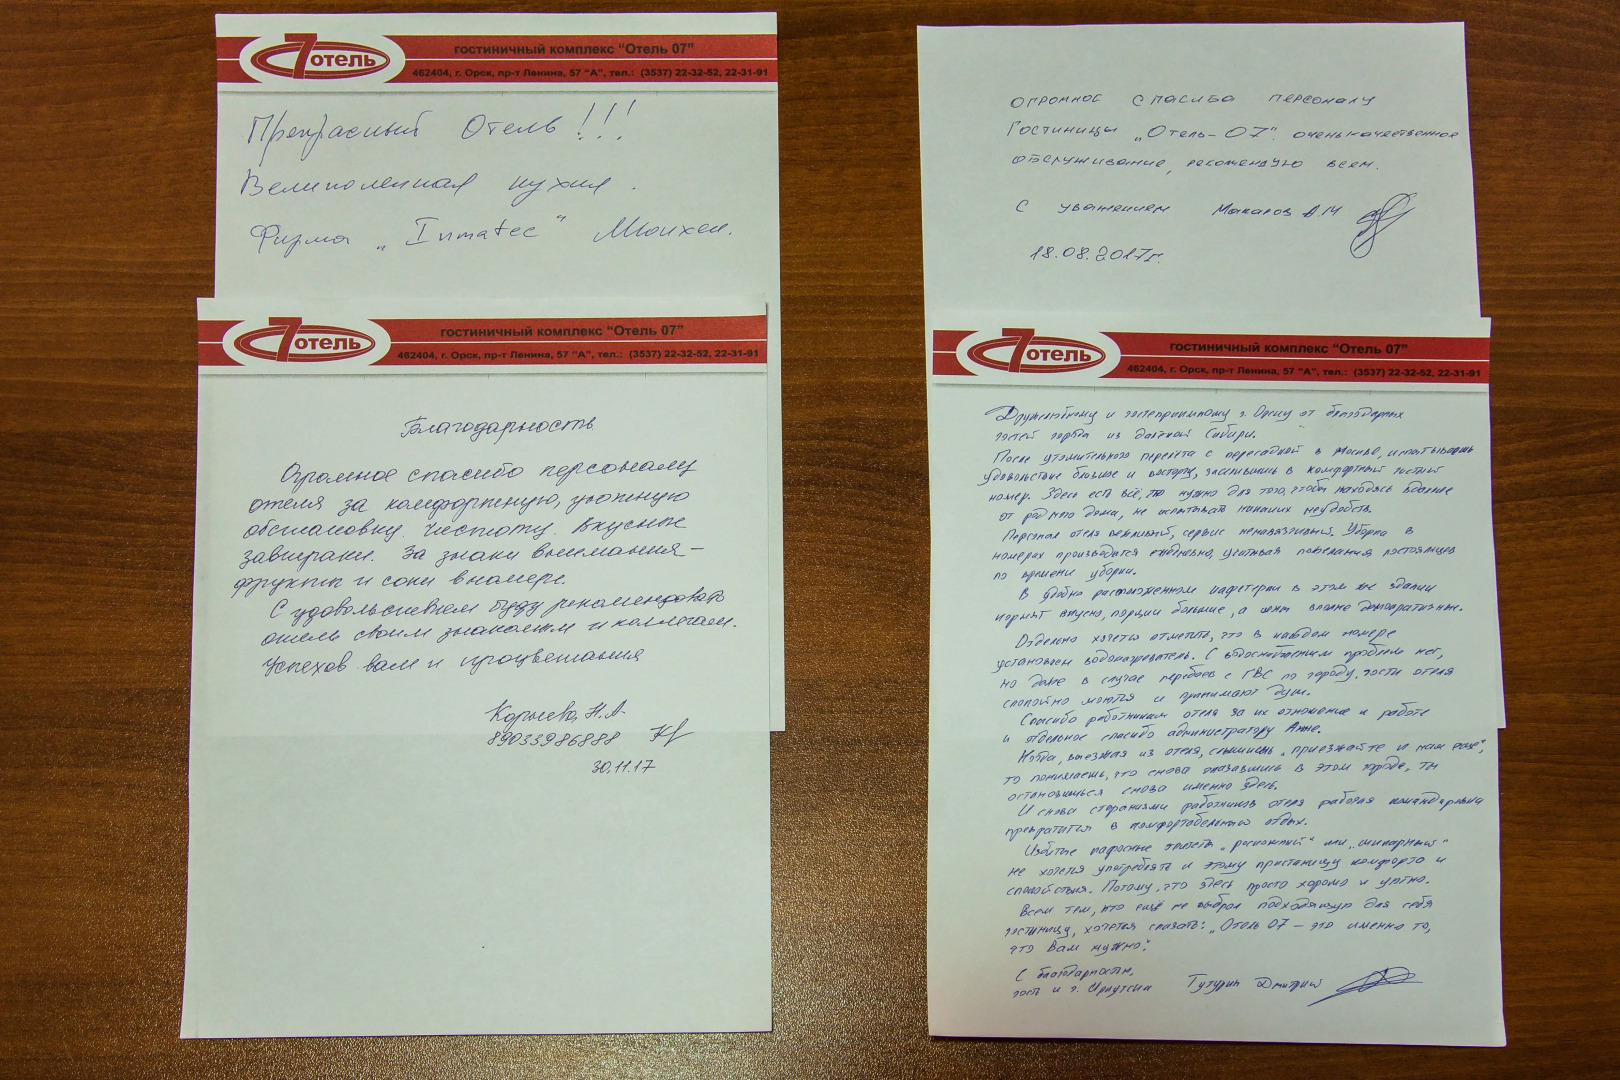 7 отель
гостиничный комплекс "Отель 07"
462404, г. Орск, пр-т Ленина, 57 "А", тел.: (3537) 22-32-52, 22-31-91
Прекрасный Отель!!!
Великолепная кухня.
Фирма „Inmatec“ Мюнхен.
7 отель
гостиничный комплекс "Отель 07"
462404, г. Орск, пр-т Ленина, 57 "А", тел.: (3537) 22-32-52, 22-31-91
Благодарность
Огромное спасибо персоналу
отеля за комфортную, уютную
обстановку. Чистоту. Вкусные
завтраки. За знаки внимания –
фрукты и соки в номере.
С удовольствием буду рекомендовать
отель своим знакомым и коллегам.
Успехов вам и процветания
Н.А.
89033986888
30.11.17
огромное спасиба персоналу
Гостиницы „Отель-07“. очень качественное
обслуживание, рекомендую всем.
С уважением Макаров А.М
18.08.2017г.
7 отель
гостиничный комплекс "Отель 07"
462404, г. Орск, пр-т Ленина, 57 "А", тел.: (3537) 22-32-52, 22-31-91
Дружелюбному и гостеприимному г. Орску от благодарных
гостей города из далёкой Сибири.
После утомительного перелёта с пересадкой в Москве, испытываешь
удовольствие большое и восторг, заселившись в комфортный гостиный
номер. Здесь есть всё, что нужно для того, чтобы находясь вдалеке
от родного дома, не испытывать никаких неудобств.
Персонал отеля вежливый, сервис ненавязчивый. Уборка в
номерах производится ежедневно, учитывая пожелания постояльцев
по времени уборки.
В удобно расположенном кафетерии в этом же здании
кормят вкусно, порции большие, а цены вполне демократичные.
Отдельно хочется отметить, что в каждом номере
установлен водонагреватель. С водоснабжением проблем нет,
но даже в случае перебоев с ГВС по городу, гости отеля
спокойно моются и принимают душ.
Спасибо работникам отеля за их отношение к работе
и отдельное спасибо администратору Анне.
Когда, выезжая из отеля, слышишь „приезжайте к нам ещё“,
то понимаешь, что снова оказавшись в этом городе, ты
остановишься снова именно здесь.
И снова стараниями работников отеля рабочая командировка
превратится в комфортабельный отдых.
Избитые пафосные эпитеты „роскошный“ или „шикарный“
не хочется употреблять к этому пристанищу комфорта и
спокойствия. Потому, что здесь просто хорошо и уютно.
Всем тем, кто ещё не выбрал подходящую для себя
гостиницу, хочется сказать: „Отель 07 – это именно то,
что Вам нужно“.
С благодарностью,
гость из г. Иркутска Дмитрий